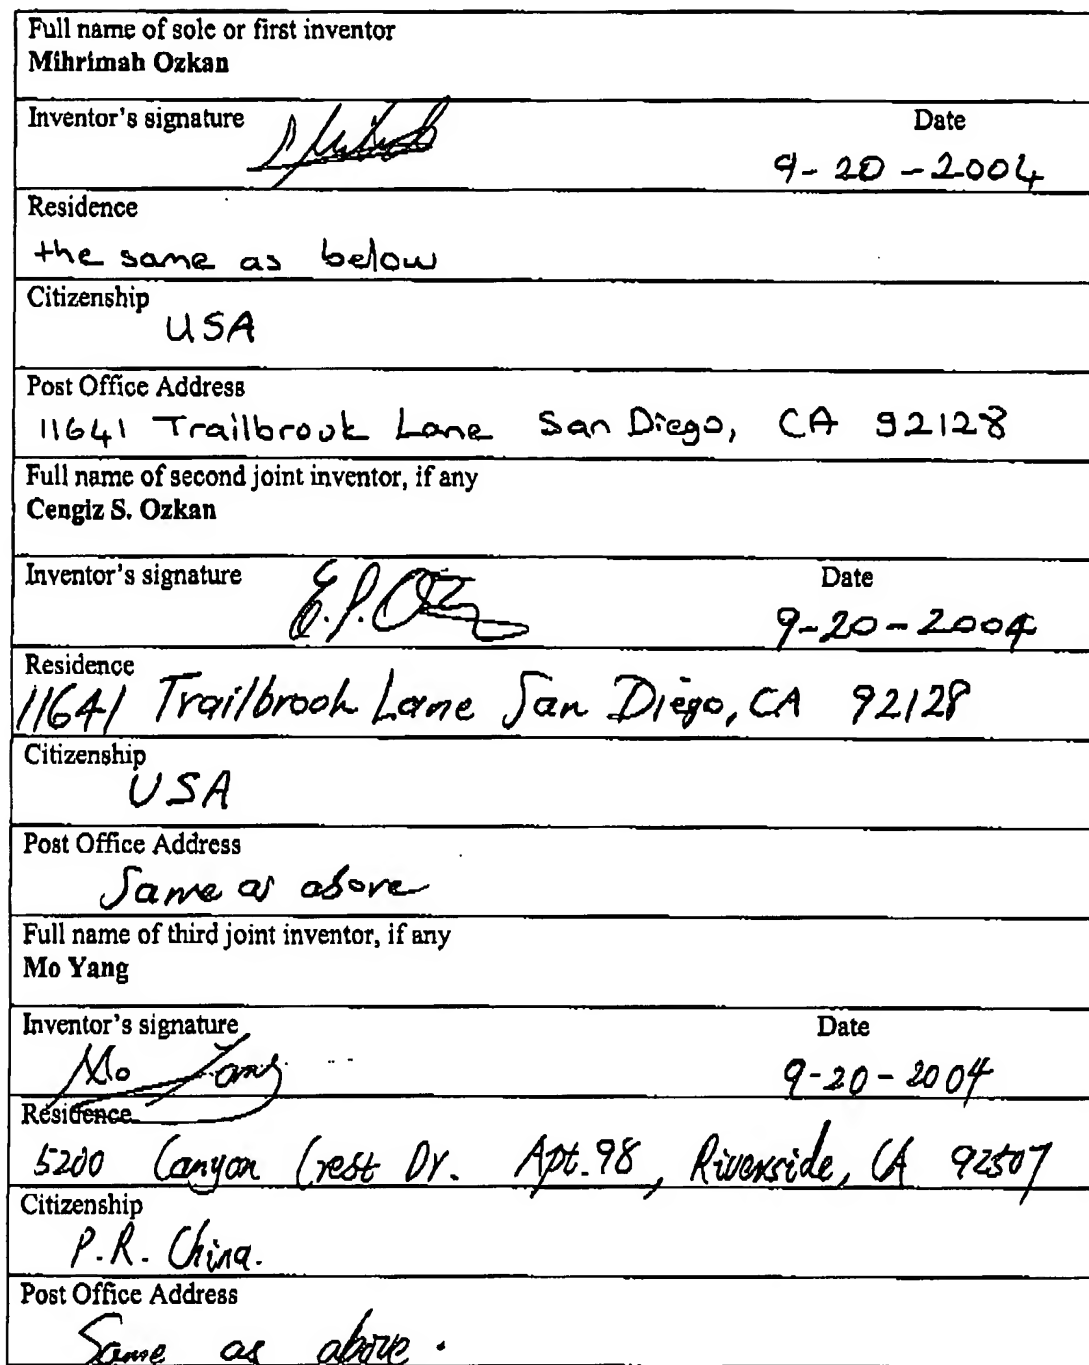 Full name of sole or first inventor
Mihrimah Ozkan
Inventor's signature Date
9-20-2004
Residence
the same as below
Citizenship
USA
Post Office Address
11641 Trailbrook Lane San Diego, CA 92128
Full name of second joint inventor, if any
Cengiz S. Ozkan
Inventor's signature Date
9-20-2004
Residence
11641 Trailbrook Lane San Diego, CA 92128
Citizenship
USA
Post Office Address
Same as above
Full name of third joint inventor, if any
Mo Yang
Inventor's signature Date
Mo Yang 9-20-2004
Residence
5200 Canyon Crest Dr. Apt. 98, Riverside, CA 92507
Citizenship
P.R. China.
Post Office Address
Same as above.